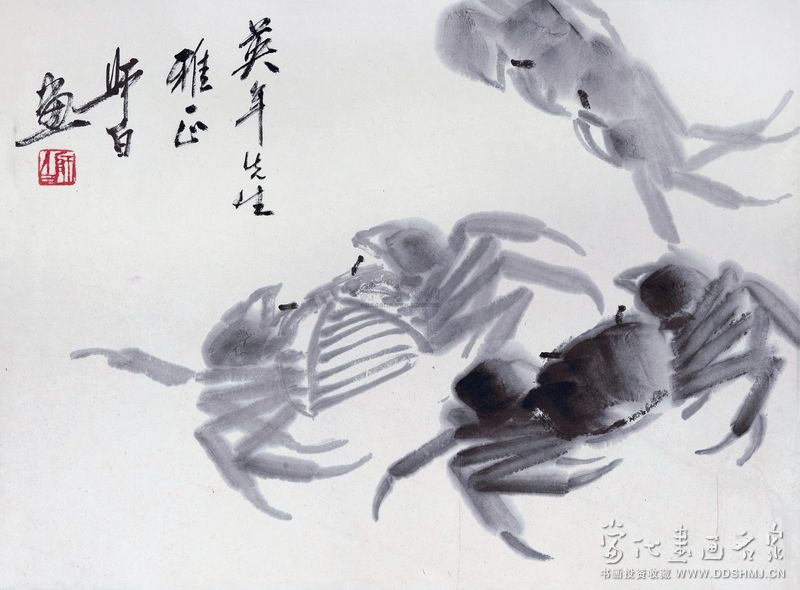 英年先生
雅正
师白
画
当代书画名家
书画投资收藏 WWW.DDSHMJ.CN